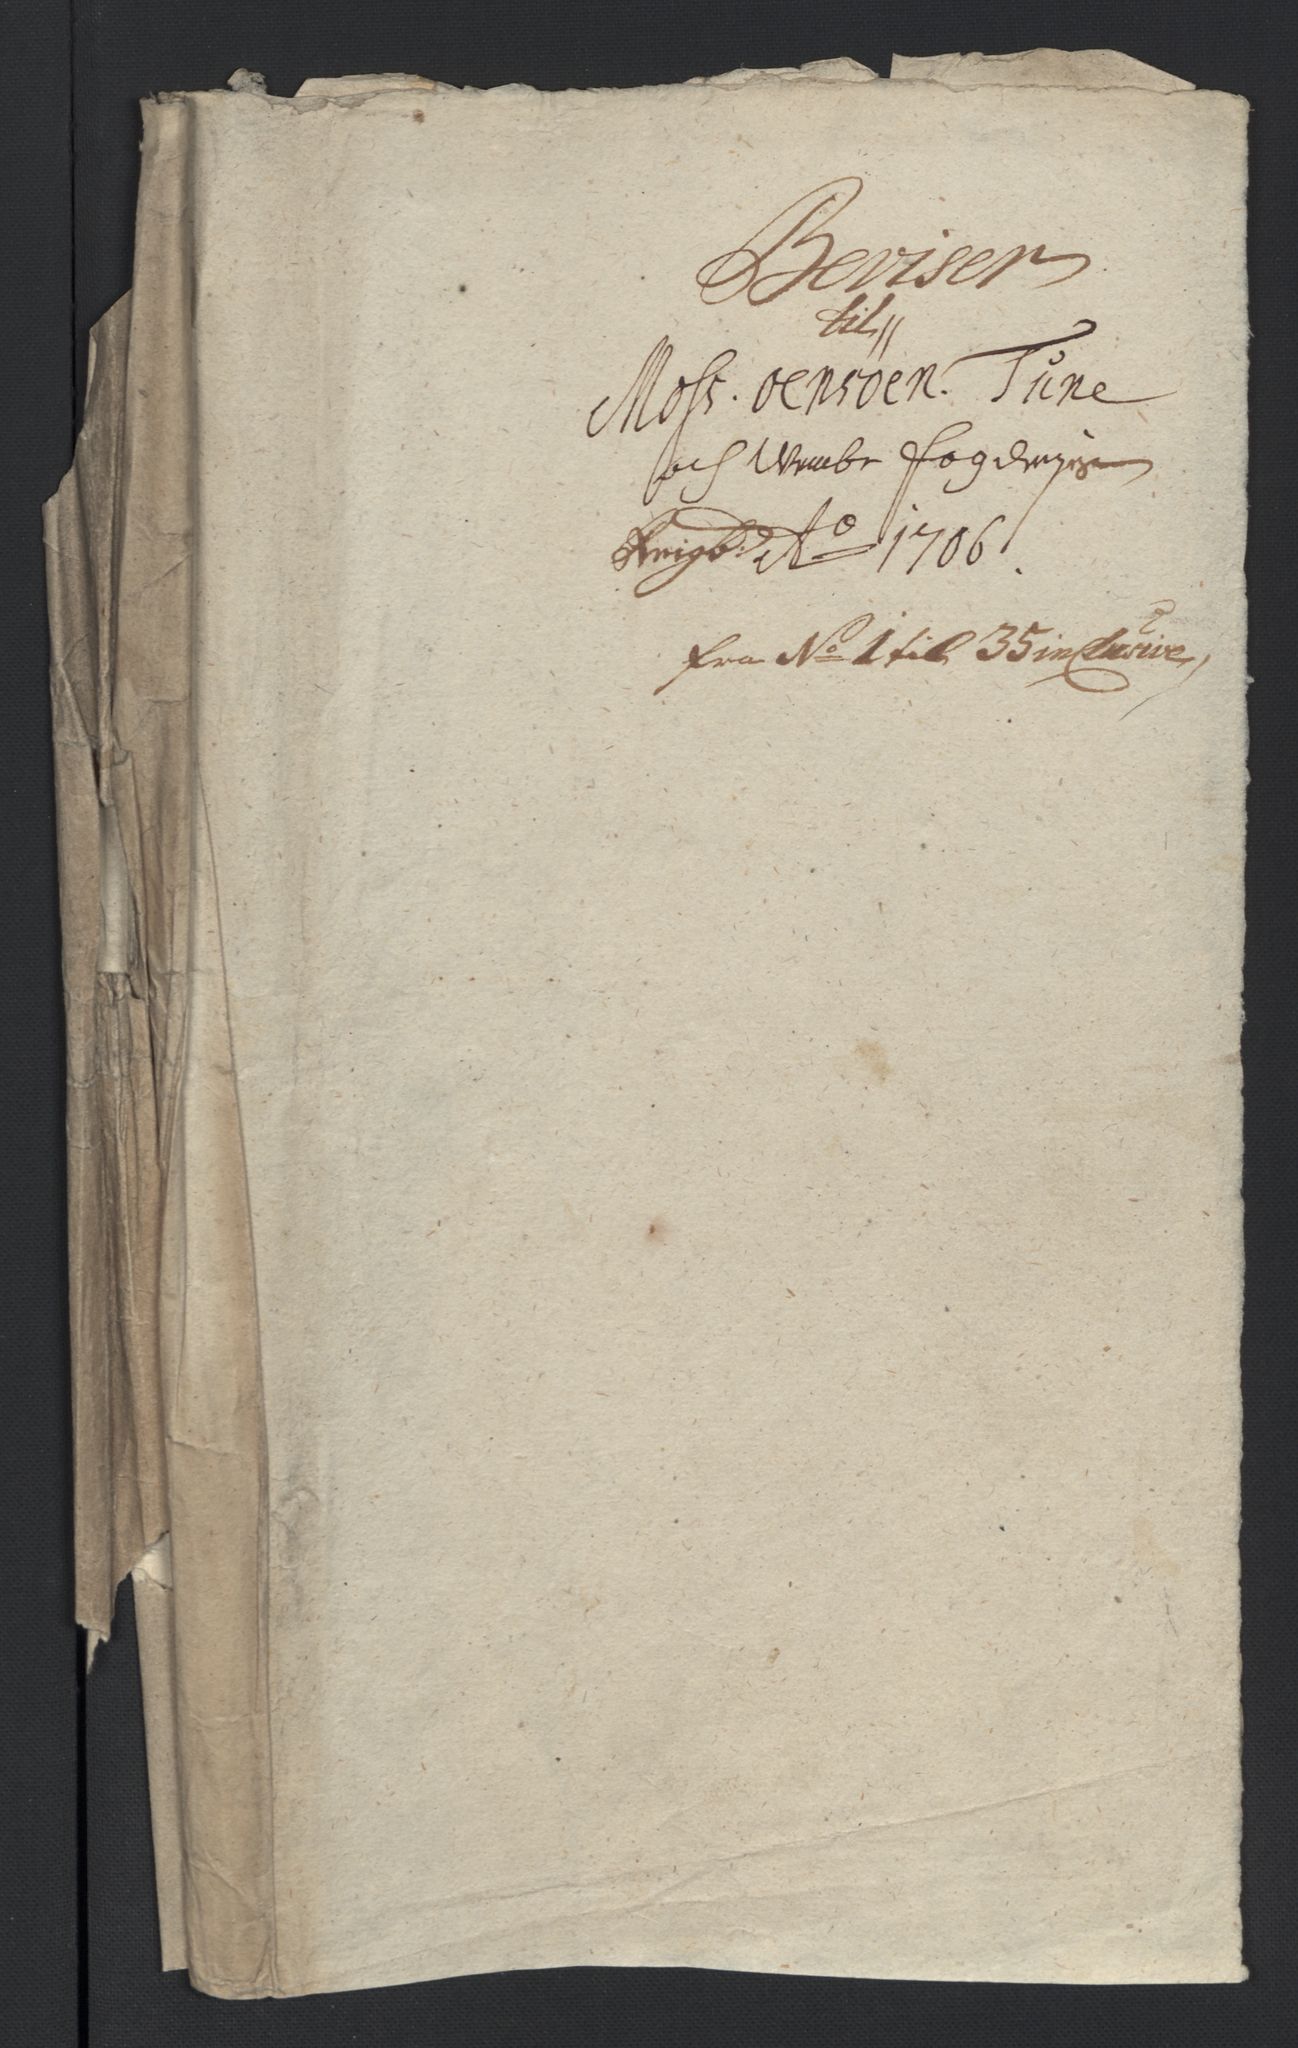 Beviser
til
Moss. oensöen. Tune
och Wembe fogderjer
Ao 1706.
fra No 1 til 35 inclusive